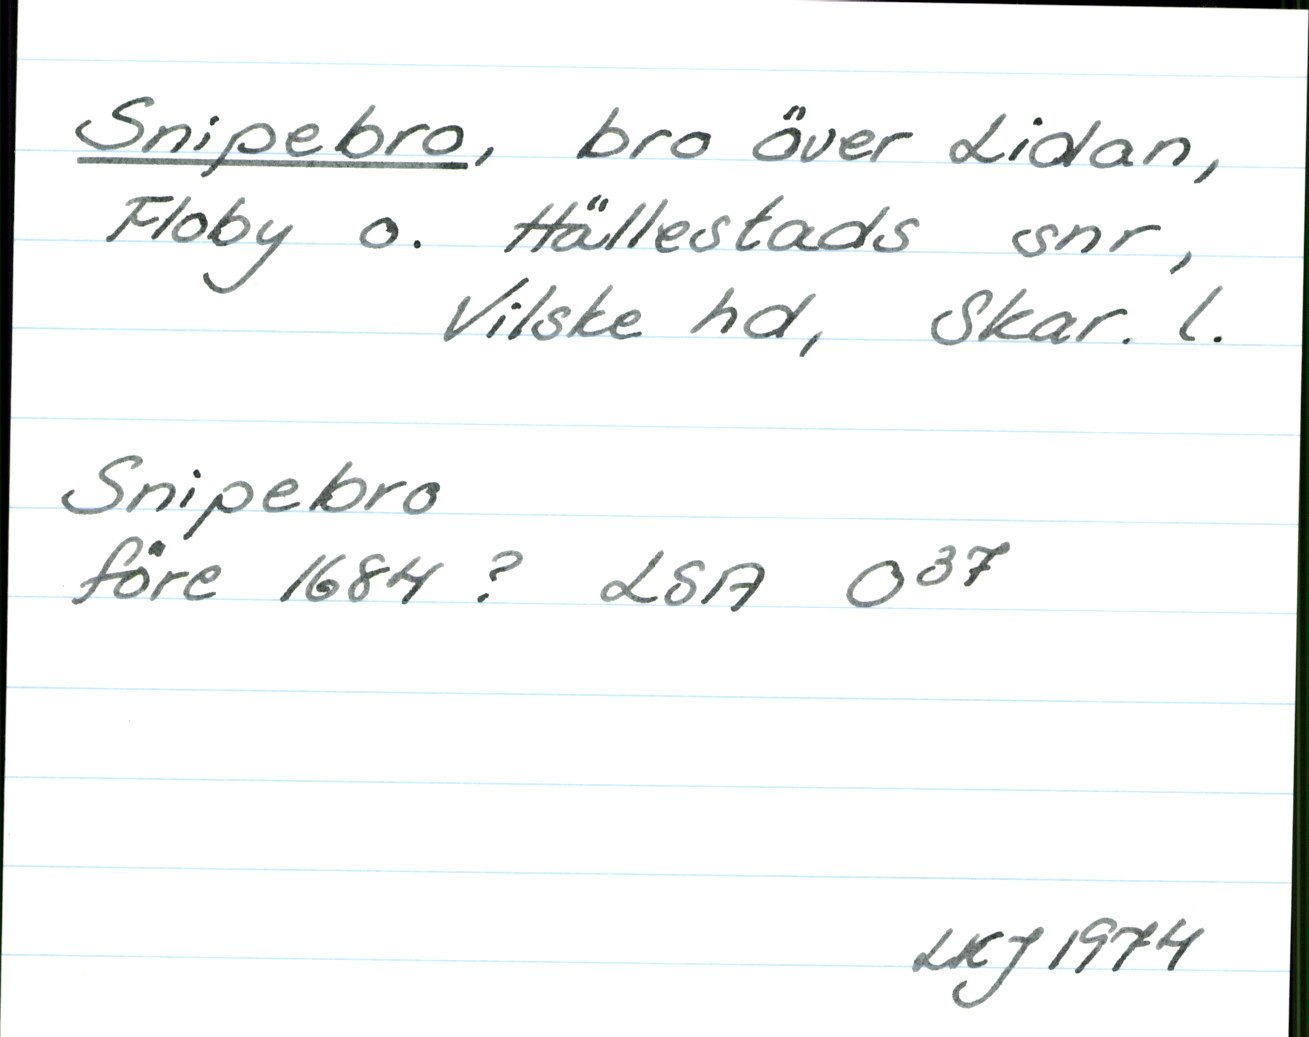 Snipebro, bro över Lidan,
Floby o. Hällestads snr,
Vilske hd, Skar. l.
Snipebro
före 1684? LSA O37
LKJ 1974